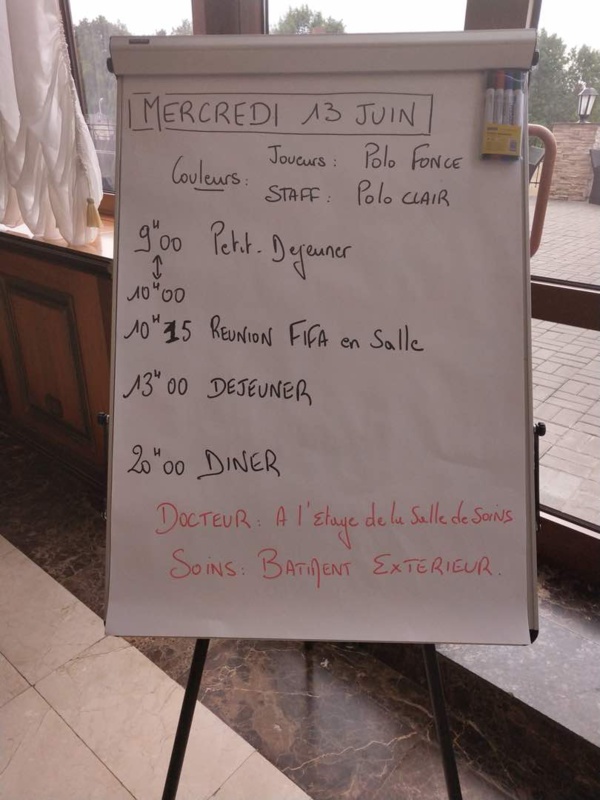 MERCREDI 13 JUIN
Couleurs: Joueurs: Polo FONCE
STAFF: Polo CLAIR
9H00 Petit-Dejeuner
↕
10H00
10H15 REUNION FIFA en Salle
13H00 DEJEUNER
20H00 DINER
DOCTEUR: A l'étage de la Salle de Soins
SOINS: BATIMENT EXTERIEUR.